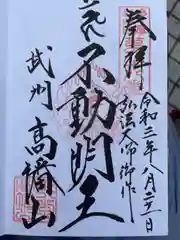 奉拝
令和三年八月
弘法大師御作
不動明王
武州
高幡山